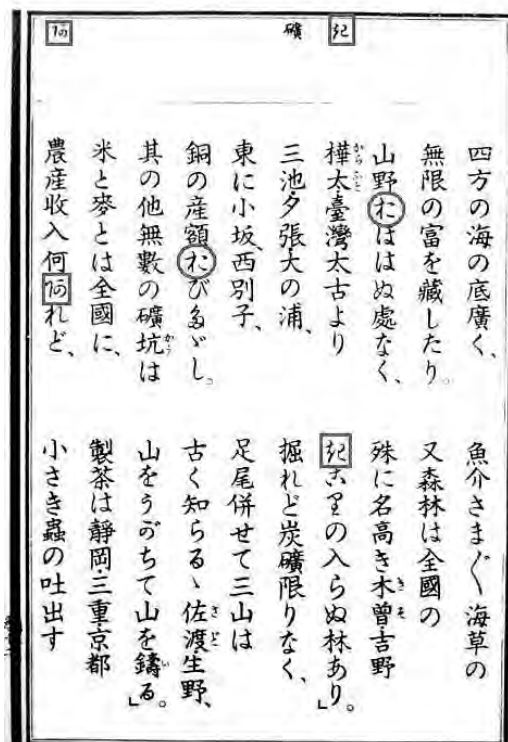 き
礦
あ
四方の海の底廣く、魚介さま〴〵海草の
無限の富を藏したり。又森林は全國の
山野おははぬ處なく、殊に名高き木曾吉野
樺太臺灣太古よりきこりの入らぬ林あり。」
三池夕張大の浦、掘れど炭礦限りなく、
東に小坂、西別子、足尾併せて三山は
銅の産額おびたゞし。古く知らるゝ佐渡生野、
其の他無數の礦坑は山をうがちて山を鑄る。」
米と麥とは全國に、製茶は靜岡三重京都
農産收入何あれど、小さき蟲の吐出す